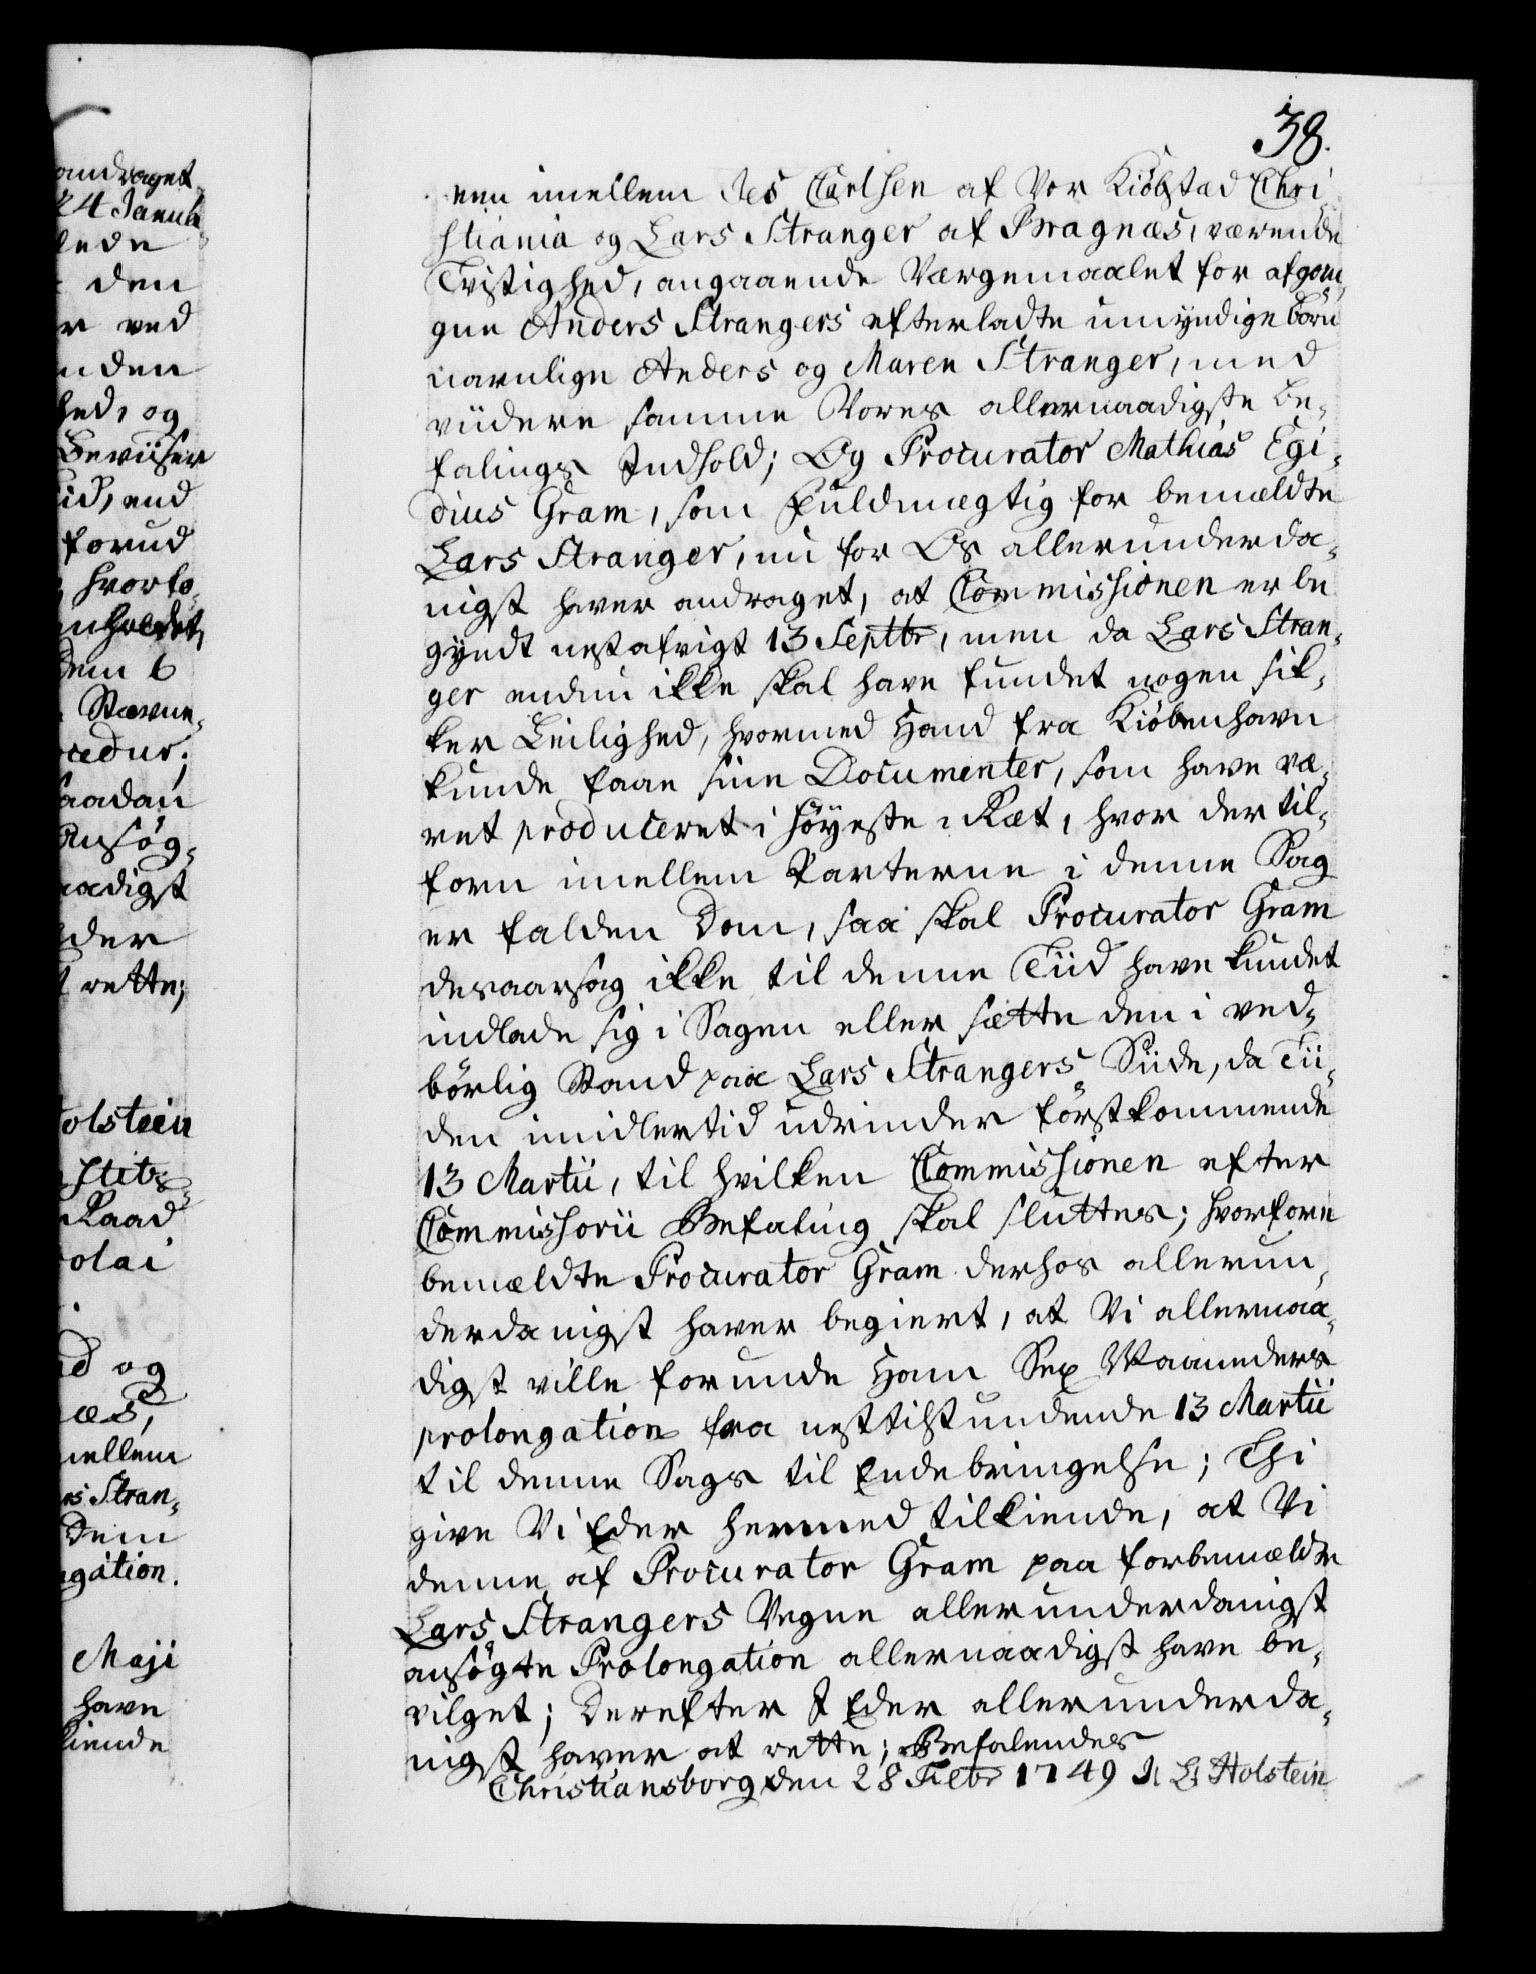 andraget
24 Januarii
lede
den
r ved
nden
hed, og
Beviiser
id, end
forud
hvorfo,
nholdet,
dem 6
Stævne,
cedur;
saadan
Ansøg,
aadigst
der
t rette;
olstein
stits,
Raad
olai
d og
æs,
mellem
rs Stran,
Dem
ngation.
Maji
have
kiende
38.
een imellem Jes Carlsen af Vor Kiøbstad Chri,
stiania og Lars Stranger af Bragnæs, værende
Tvistighed, angaaende Værgemaalet for afgan,
gne Anders Strangers efterladte umyndige börn
navnlige Anders og Maren Stranger, med
viidere samme Vores allernaadigste Be,
falings Indhold; Og Procurator Mathias Egi,
dius Gram, som Fuldmægtig for bemældte
Lars Stranger, nu for Os allerunderda,
nigst haver andraget, at Commissionen er be
gyndt nestafvigt 13 Septbr, men da Lars Stran,
ger endnu ikke skal have fundet nogen sik,
ker Leilighed, hvormed Hand fra Kiøbenhavn
kunde faae sine Documenter, som have væ,
ret produceret i Höyeste-Ræt, hvor der til,
forn imellem Parterne i denne Sag
er falden Dom, saa skal Procurator Gram
desaarsag ikke til denne Tiid have kundet
indlade sig i Sagen eller sætte den i ved,
börlig Stand paa Lars Strangers Siide, da Tii,
den imidlertid udrinder förstkommende
13 Martii, til hvilken Commissionen efter
Commissorii Befaling skal sluttes; hvorfore
bemældte Procurator Gram derhos allerun,
derdanigst haver begiert, at Vi allernaa,
digst ville forunde Ham Sex Maaneders
prolongation fra nesttilstundende 13 Martii
til denne Sags til Endebringelse; Thi
give Vi Eder hermed tilkiende, at Vi
denne af Procurator Gram paa forbemældte
Lars Strangers Vegne allerunderdanigst
ansögte Prolongation allernaadigst have be,
vilget; Derefter I Eder allerunderda,
nigst haver at rette; Befalendes
Christiansborg den 28 Febr 1749 J: L: Holstein